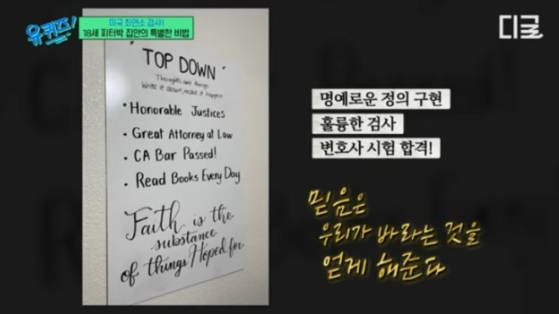 유퀴즈!
미국 최연소 검사!
18세 피터박 집안의 특별한 비법
디글
" TOP DOWN "
Thoughts are things.
Write it down, make it happen
• Honorable Justices
• Great Attorney at Law
• CA Bar Passed!
• Read Books Every Day
Faith is the
substance
of things Hoped for
명예로운 정의 구현
훌륭한 검사
변호사 시험 합격!
믿음은
우리가 바라는 것을
얻게 해준다